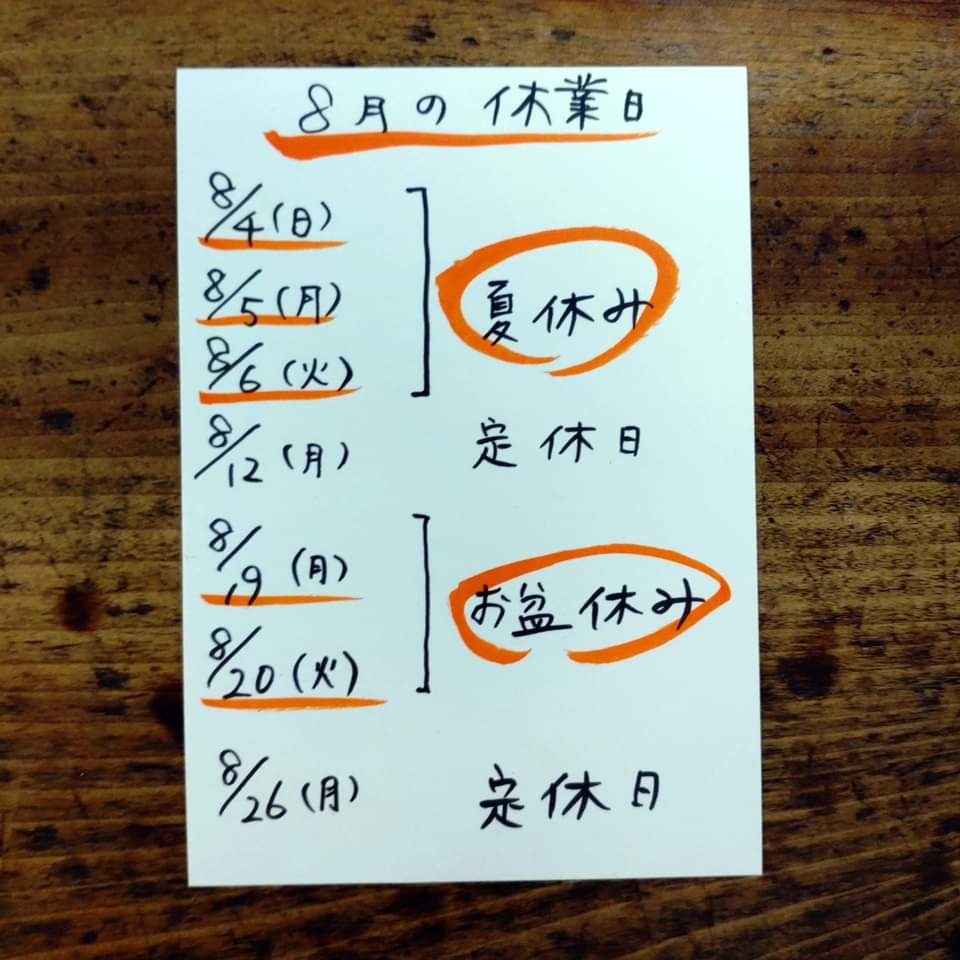 8月の休業日
8/4(日)
8/5(月) 夏休み
8/6(火)
8/12(月) 定休日
8/19(月)
お盆休み
8/20(火)
8/26(月) 定休日